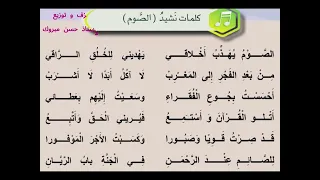 كلمات نشيد (الصَّوم)
زف و توزيع
ستاذ حسن مبروك
الصَّوْمُ يُهَذِّبُ أَخْلاقي يَهْديني لِلْخُلُقِ الرَّاقي
مِنْ بَعْدِ الفَجْرِ إلى المَغْرِبْ لا آكُلُ أَبَدًا لا أَشْرَبْ
أَحْسَسْتُ بِجُوعِ الْفُقَراءِ وَسَعَيْتُ إِلَيْهِم بِعَطائي
أَتْلو الْقُرْآنَ وَ أَسْتَمِعُ فَيُريني الْحَقَّ وَأَتَّبِعُ
قَدْ صِرْتُ قَوِيًّا وَصَبُورا وَكَسَبْتُ الأَجْرَ الْمَوْفُورا
لِلصَّائِمِ عِنْدَ الرَّحْمَنِ في الْجَنَّةِ بابُ الرَّيَّانِ